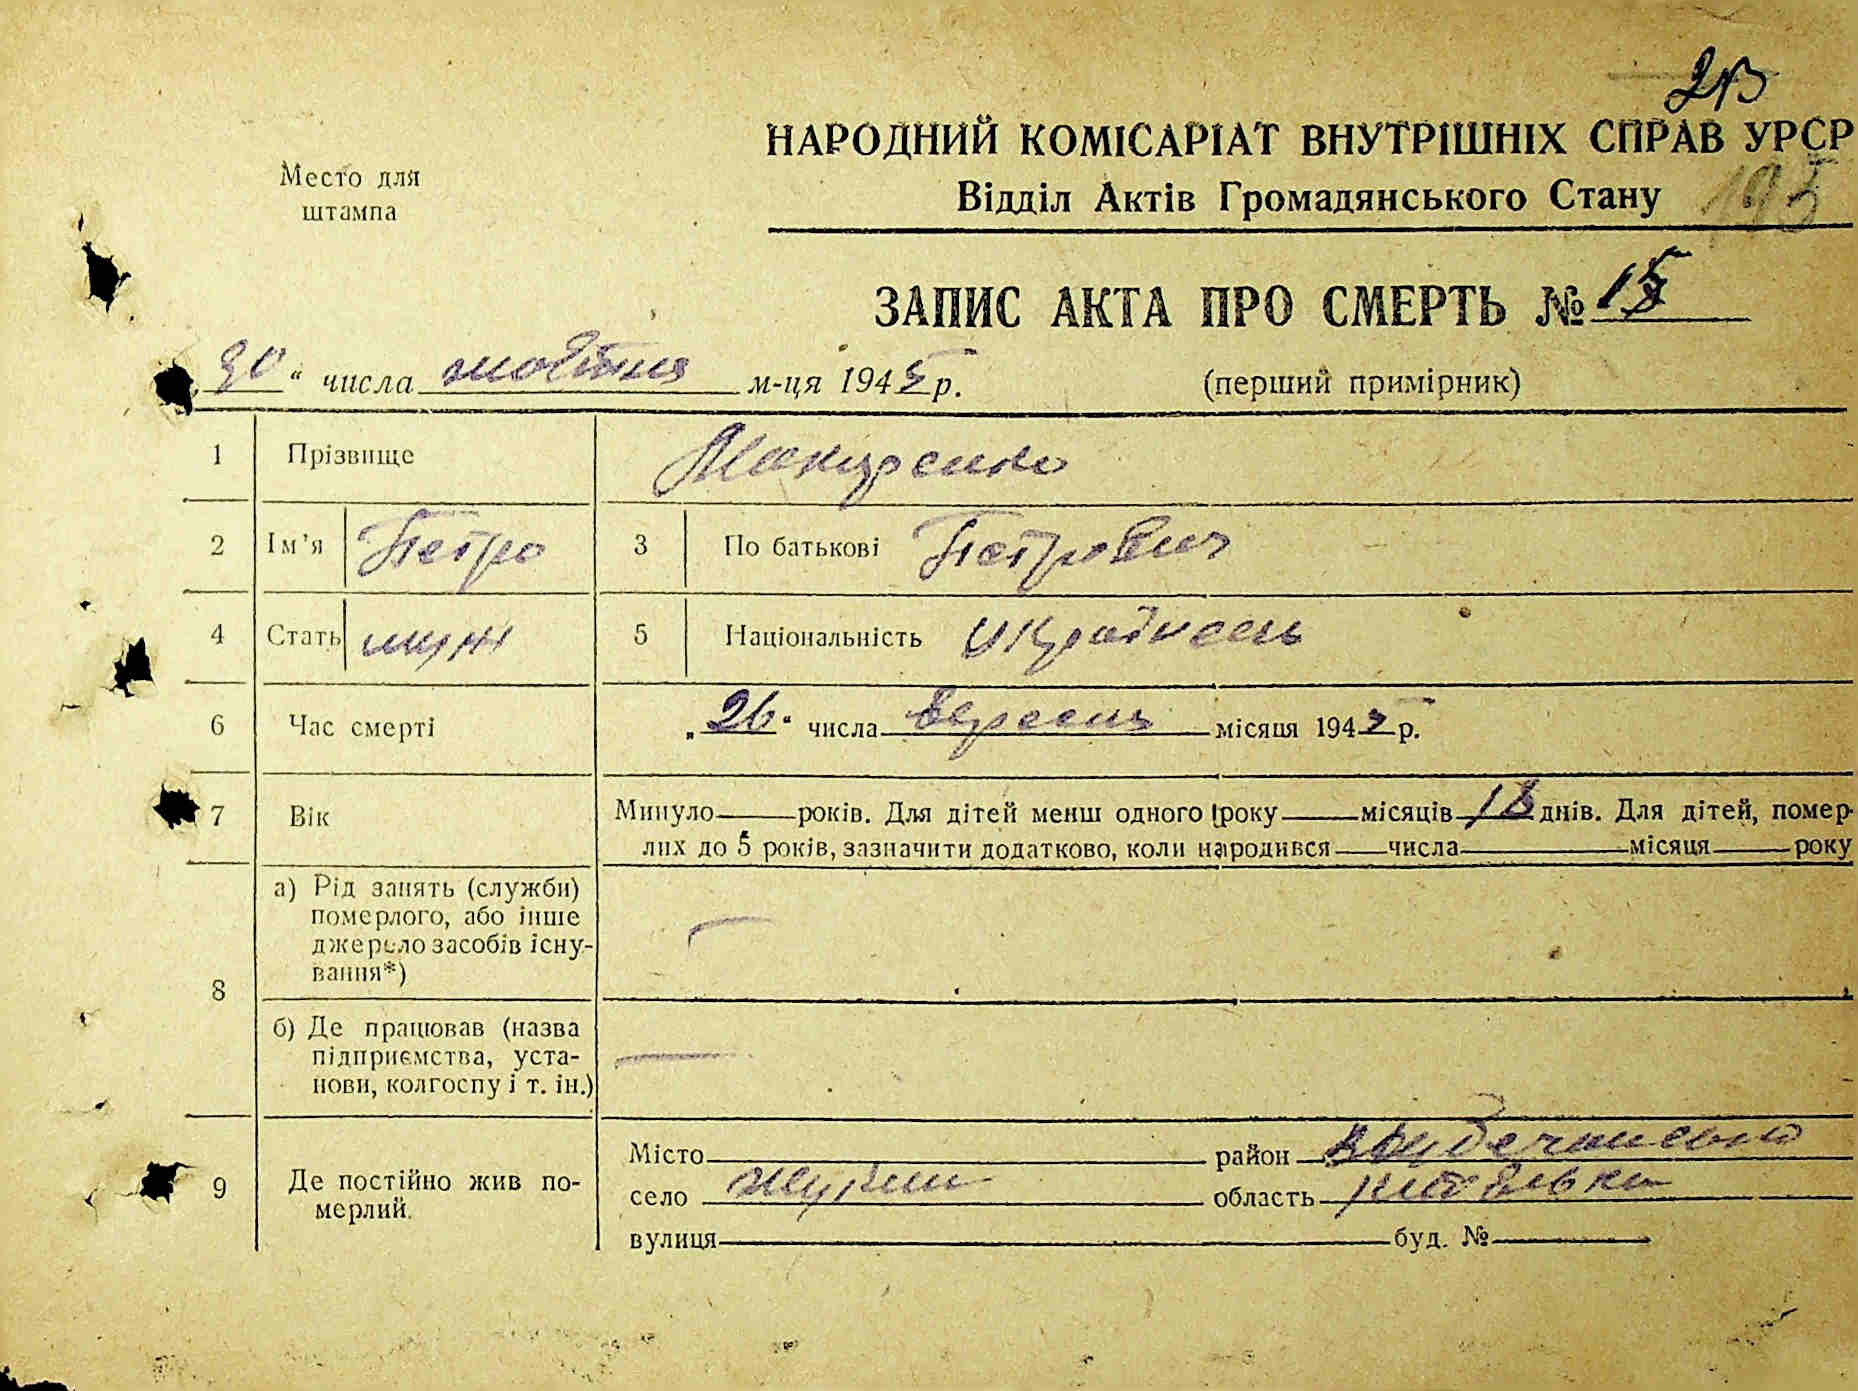 213
НАРОДНИЙ КОМІСАРІАТ ВНУТРІШНІХ СПРАВ УРСР
Відділ Актів Громадянського Стану
193
Место для
штампа
ЗАПИС АКТА ПРО СМЕРТЬ № 15
„30“ числа жовтня м-ця 1945 р.
(перший примірник)
1 Прізвище Макуренко
2 Ім'я Петро 3 По батькові Петрович
4 Стать муж 5 Національність Українець
6 Час смерті „26“ числа вересень місяця 1945 р.
7 Вік Минуло ___ років. Для дітей менш одного року ___ місяців 18 днів. Для дітей, помер-
лих до 5 років, зазначити додатково, коли народився ___ числа ___ місяця ___ року
8 а) Рід занять (служби)
померлого, або інше
джерело засобів існу-
вання*) —
б) Де працював (назва
підприємства, уста-
нови, колгоспу і т. ін.) —
9 Де постійно жив по-
мерлий.
Місто ___ район
село область Київська
вулиця ___ буд. № ___